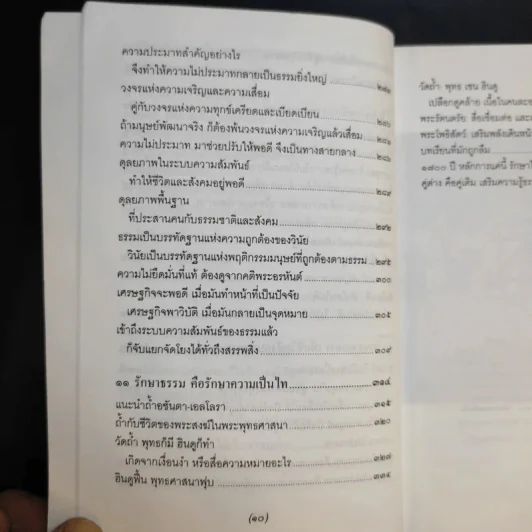 ความประมาทสำคัญอย่างไร
จึงทำให้ความไม่ประมาทกลายเป็นธรรมยิ่งใหญ่
วงจรแห่งความเจริญและความเสื่อม
คู่กับวงจรแห่งความทุกข์เครียดและเบียดเบียน
ถ้ามนุษย์พัฒนาจริง ก็ต้องพ้นวงจรแห่งความเจริญแล้วเสื่อม
ความไม่ประมาท มาช่วยปรับให้พอดี จึงเป็นทางสายกลาง
ดุลยภาพในระบบความสัมพันธ์
ทำให้ชีวิตและสังคมอยู่พอดี ๒๘๙
ดุลยภาพพื้นฐาน
ที่ประสานคนกับธรรมชาติและสังคม ๒๙๒
ธรรมเป็นบรรทัดฐานแห่งความถูกต้องของวินัย
วินัยเป็นบรรทัดฐานแห่งพฤติกรรมมนุษย์ที่ถูกต้องตามธรรม ๒๙๕
ความไม่ยึดมั่นที่แท้ ต้องดูจากคติพระอรหันต์ ๓๐๐
เศรษฐกิจจะพอดี เมื่อมันทำหน้าที่เป็นปัจจัย
เศรษฐกิจพาวิบัติ เมื่อมันกลายเป็นจุดหมาย ๓๐๕
เข้าถึงระบบความสัมพันธ์ของธรรมแล้ว
ก็จับแยกจัดโยงได้ทั่วถึงสรรพสิ่ง ๓๐๙
๑๑ รักษาธรรม คือรักษาความเป็นไท ๓๑๔
แนะนำถ้ำอชันตา-เอลโลรา ๓๑๕
ถ้ำกับชีวิตของพระสงฆ์ในพระพุทธศาสนา ๓๒๐
วัดถ้ำ พุทธก็มี ฮินดูก็ทำ
เกิดจากเงื่อนงำ หรือสื่อความหมายอะไร ๓๒๗
ฮินดูฟื้น พุทธศาสนาฟุบ ๓๓๔
(๑๐)
วัดถ้ำ พุทธ เชน ฮินดู
เปลือกดูคล้าย เนื้อในคนละ
พระรัตนตรัย สื่อเชื่อมต่อ และ
พระโพธิสัตว์ เสริมพลังเดินหน้า
บทเรียนที่มักถูกลืม
๑๗๐๐ ปี หลักการแค่นี้ รักษา
คู่ต่าง คือคู่เติม เสริมความรู้